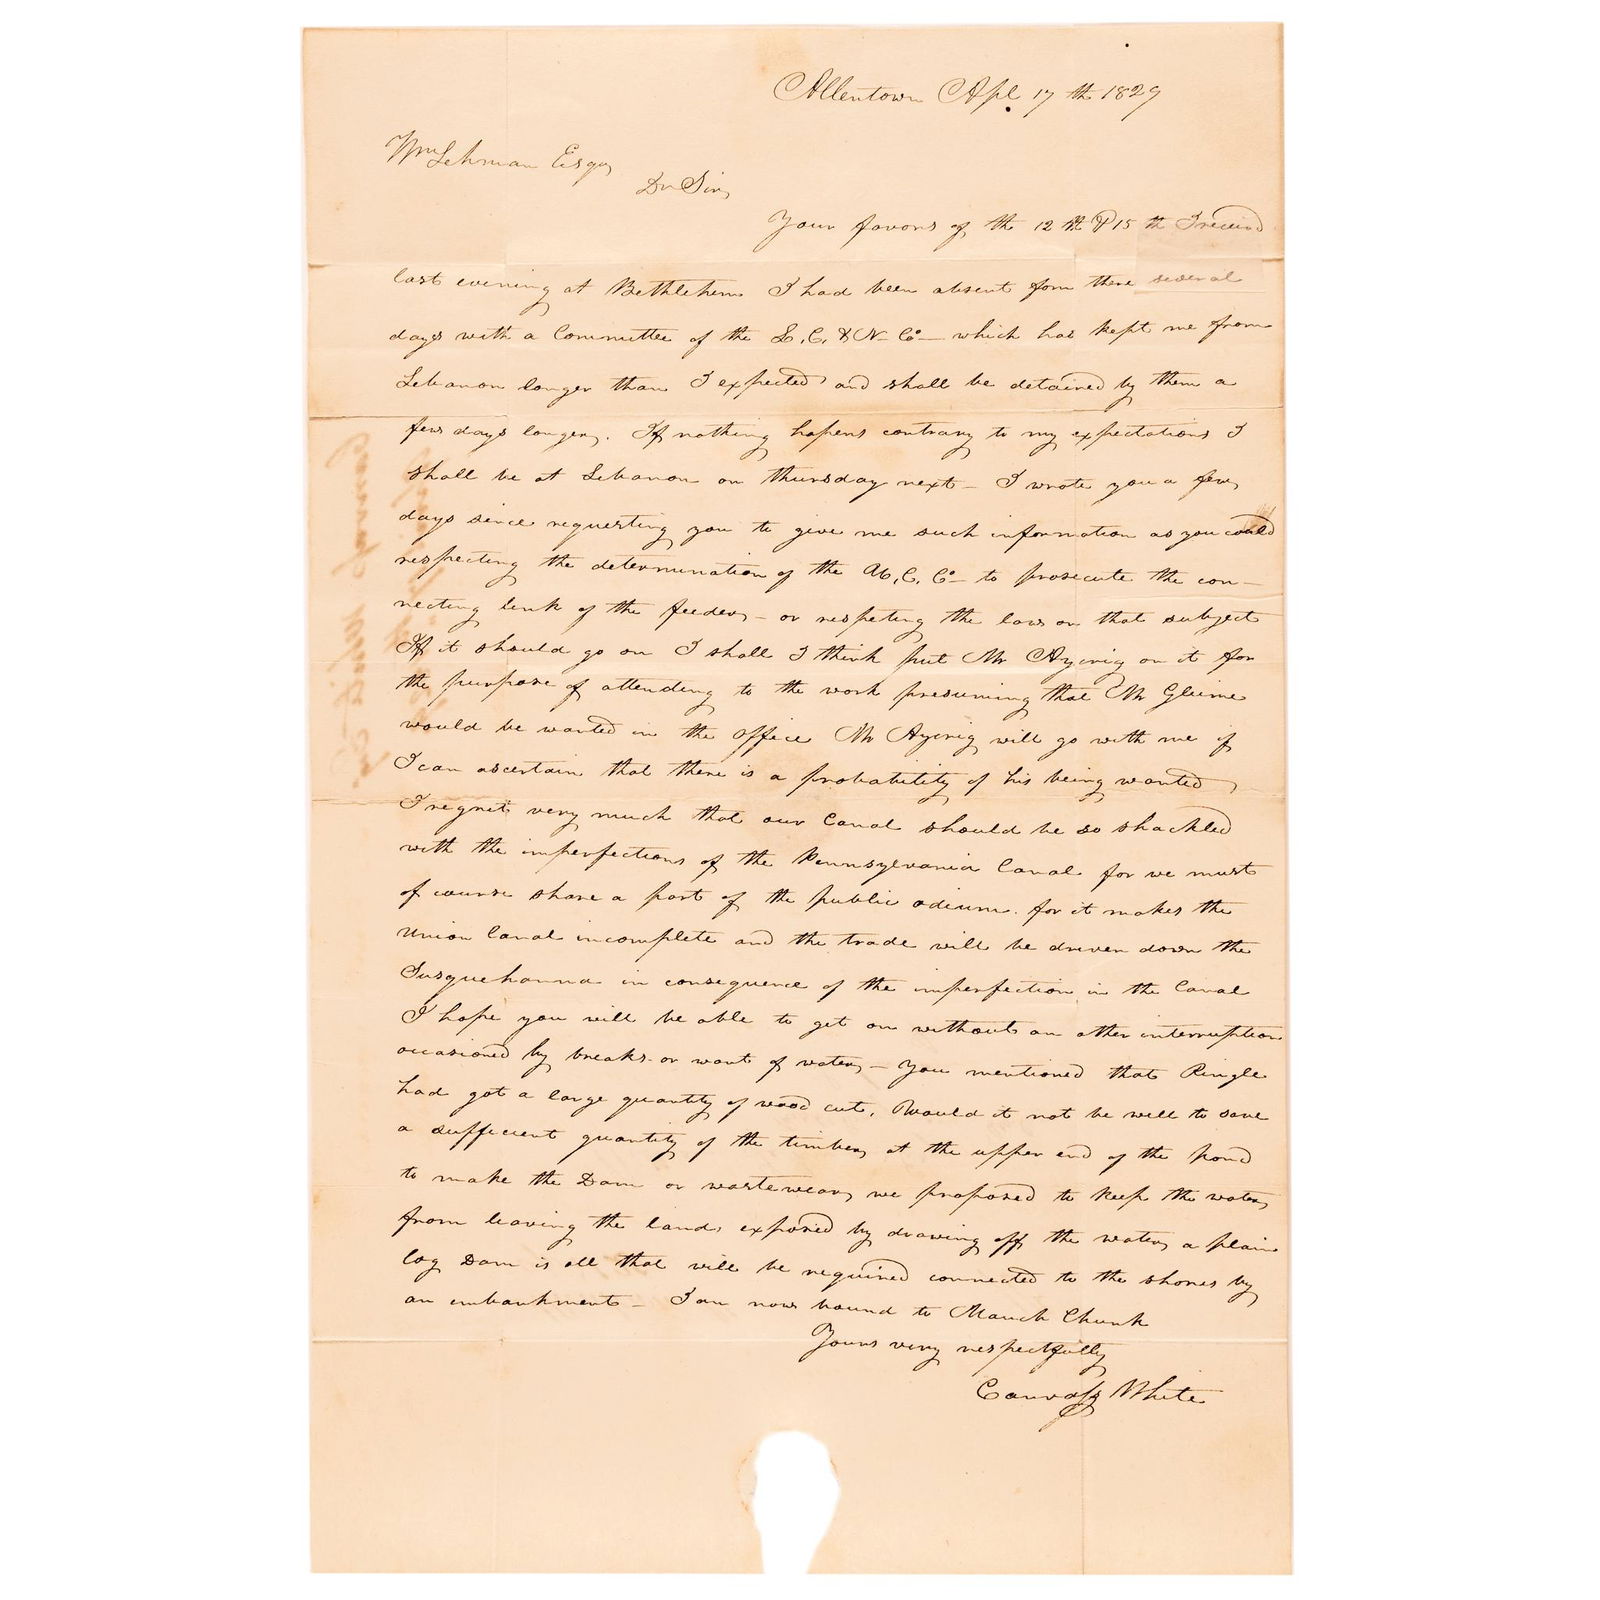 Allentown Apl. 17th 1829
Wm Lehman Esqr
Dr Sir,
Your favors of the 12th & 15th I receivd
last evening at Bethlehem I had been absent from there several
days with a Committee of the L. C. & N. Co – which has kept me from
Lebanon longer than I expected and shall be detained by them a
few days longer. If nothing hapens contrary to my expectations I
shall be at Lebanon on thursday next – I wrote you a few
days since requesting you to give me such information as you could
respecting the determination of the C. Co – to prosecute the con–
necting link of the feeder, – or respeting the law on that subject
If it should go on I shall I think put Mr Aycrig on it for
the purpose of attending to the work presuming that Mr
would be wanted in the office Mr Aycrig will go with me if
I can ascertain that there is a probability of his being wanted,
I regret very much that our Canal should be so shackled
with the imperfections of the Pennsylvania Canal for we must
of course share a part of the public odium. for it makes the
Union Canal incomplete and the trade will be driven down the
Susquehanna in consequence of the imperfection in the Canal
I hope you will be able to get on without an other interruption
occasioned by breaks or want of water, – You mentioned that Ringle
had got a large quantity of wood cut. Would it not be well to save
a sufficient quantity of the timber, at the upper end of the pond
to make the Dam or waste wear, we proposed to keep the water,
from leaving the lands exposed by drawing off the water, a plain
log Dam is all that will be required connected to the shores by
an embankment – I am now bound to Mauch Chunk
Yours very respectfully
Canvass White